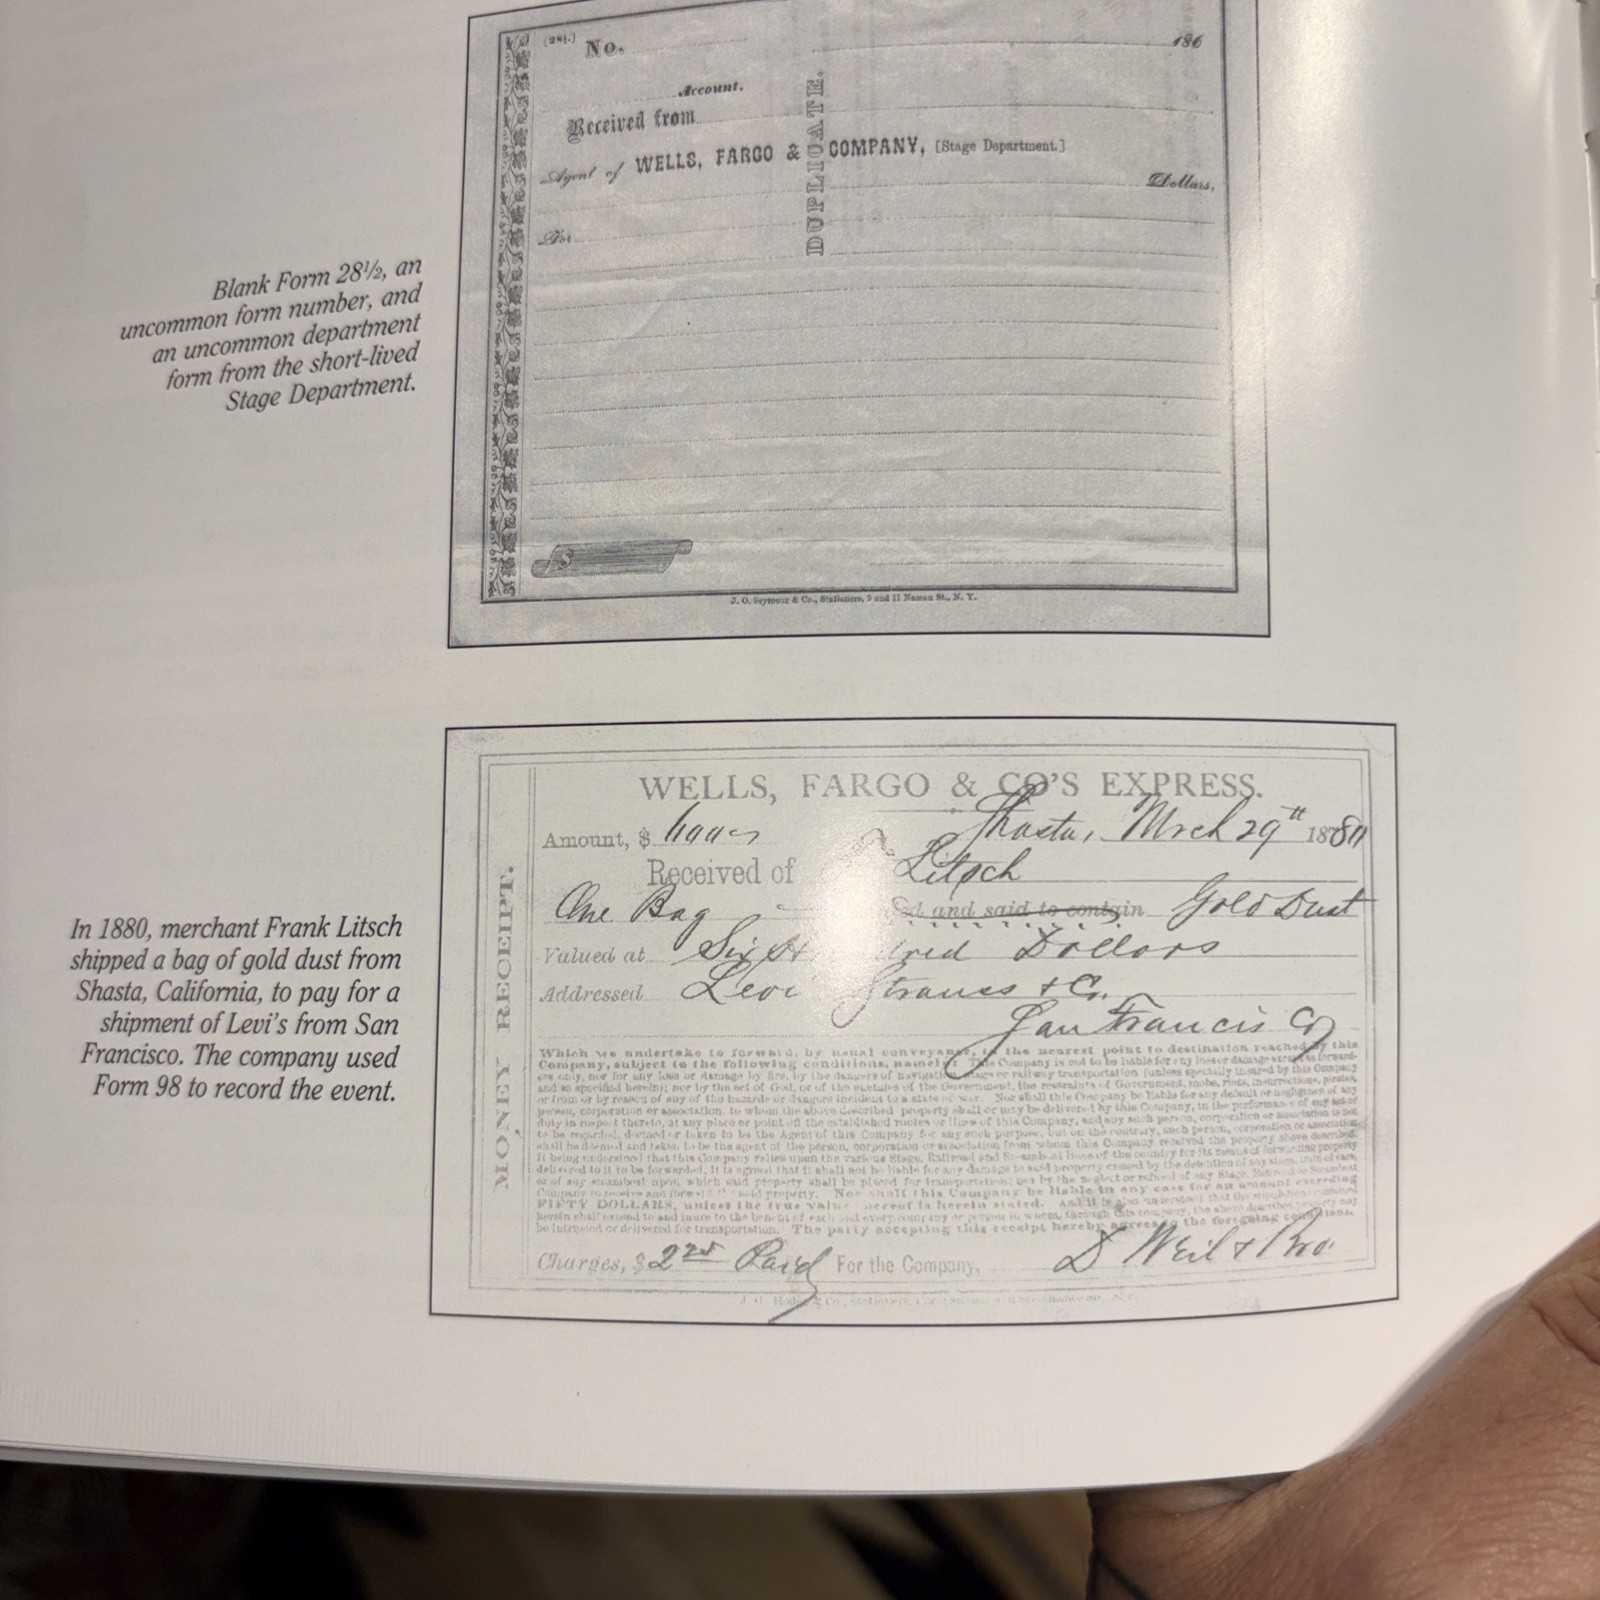 (28½.) No. 186
Account.
Received from
Agent of WELLS, FARGO & COMPANY, [Stage Department.]
Dollars,
For
DUPLICATE.
$
J. O. Seymour & Co., Stationers, 9 and 11 Nassau St., N. Y.
Blank Form 28½, an
uncommon form number, and
an uncommon department
form from the short-lived
Stage Department.
In 1880, merchant Frank Litsch
shipped a bag of gold dust from
Shasta, California, to pay for a
shipment of Levi's from San
Francisco. The company used
Form 98 to record the event.
MONEY RECEIPT.
WELLS, FARGO & CO'S EXPRESS.
Amount, $ Shasta, Mrch 29th 1880
Received of Litsch
One Bag and said to contain Gold Dust
Valued at Six Dollars
Addressed Levi Strauss & Co.
San Francisco
Which we undertake to forward, by usual conveyance, to the nearest point to destination reached by this
Company, subject to the following conditions, namely: This Company is not to be liable for any loss or damage except as forward-
ers only, nor for any loss or damage by fire, by the dangers of navigation, stage or railway transportation (unless specially insured by this Company
and so specified herein); nor by the act of God, or of the enemies of the Government, the restraints of Government, mobs, riots, insurrections, pirates,
or from or by reason of any of the hazards or dangers incident to a state of war. Nor shall this Company be liable for any default or negligence of any
person, corporation or association, to whom the above described property shall or may be delivered by this Company, in the performance of any act or
duty in respect thereto, at any place or point off the established routes or lines of this Company, and any such person, corporation or association is not
to be regarded, deemed or taken to be the Agent of this Company for any such purpose, but on the contrary, such person, corporation or association
shall be deemed and taken to be the agent of the person, corporation or association from whom this Company received the property above described.
It being understood that this Company relies upon the various Stage, Railroad and Steamboat lines of the country for its means of forwarding property
delivered to it to be forwarded, it is agreed that it shall not be liable for any damage to said property caused by the detention of any stage, train of cars,
or of any steamboat upon which said property shall be placed for transportation; nor by the neglect or refusal of any Stage, Railroad or Steamboat
Company to receive and forward the said property. Nor shall this Company be liable in any case for an amount exceeding
FIFTY DOLLARS, unless the true value hereof is herein stated. And it is also understood that the stipulations contained
herein shall extend to and inure to the benefit of each and every company or person to whom, through this company, the above described property may
be intrusted or delivered for transportation. The party accepting this receipt hereby agrees to the foregoing conditions.
Charges, $ Paid For the Company, D Weil & Bro.